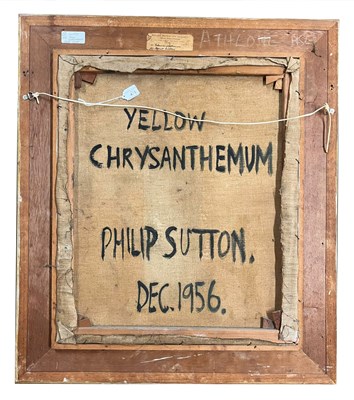 YELLOW
CHRYSANTHEMUM
PHILIP SUTTON.
DEC. 1956.